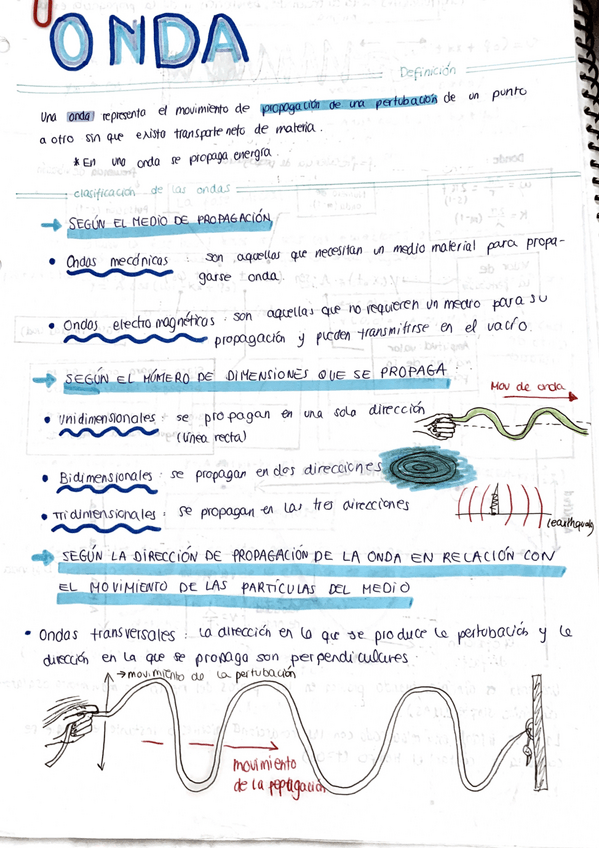 ONDA
Definición
Una onda representa el movimiento de propagación de una pertubación de un punto
a otro sin que exista transporte neto de materia.
* En una onda se propaga energía.
clasificación de las ondas
→ SEGÚN EL MEDIO DE PROPAGACIÓN
• Ondas mecánicas : son aquellas que necesitan un medio material para propa-
garse onda.
• Ondas electromagnéticas : son aquellas que no requieren un medio para su
propagación y pueden transmitirse en el vacío.
→ SEGÚN EL NÚMERO DE DIMENSIONES QUE SE PROPAGA :
Mov de onda
• Unidimensionales : se propagan en una sola dirección
(línea recta)
• Bidimensionales : se propagan en dos direcciones
• Tridimensionales : se propagan en las tres direcciones
(earthquake)
→ SEGÚN LA DIRECCIÓN DE PROPAGACIÓN DE LA ONDA EN RELACIÓN CON
EL MOVIMIENTO DE LAS PARTÍCULAS DEL MEDIO
• Ondas transversales : la dirección en la que se produce la pertubación y la
dirección en la que se propaga son perpendiculares.
→ movimiento de la pertubación
movimiento
de la